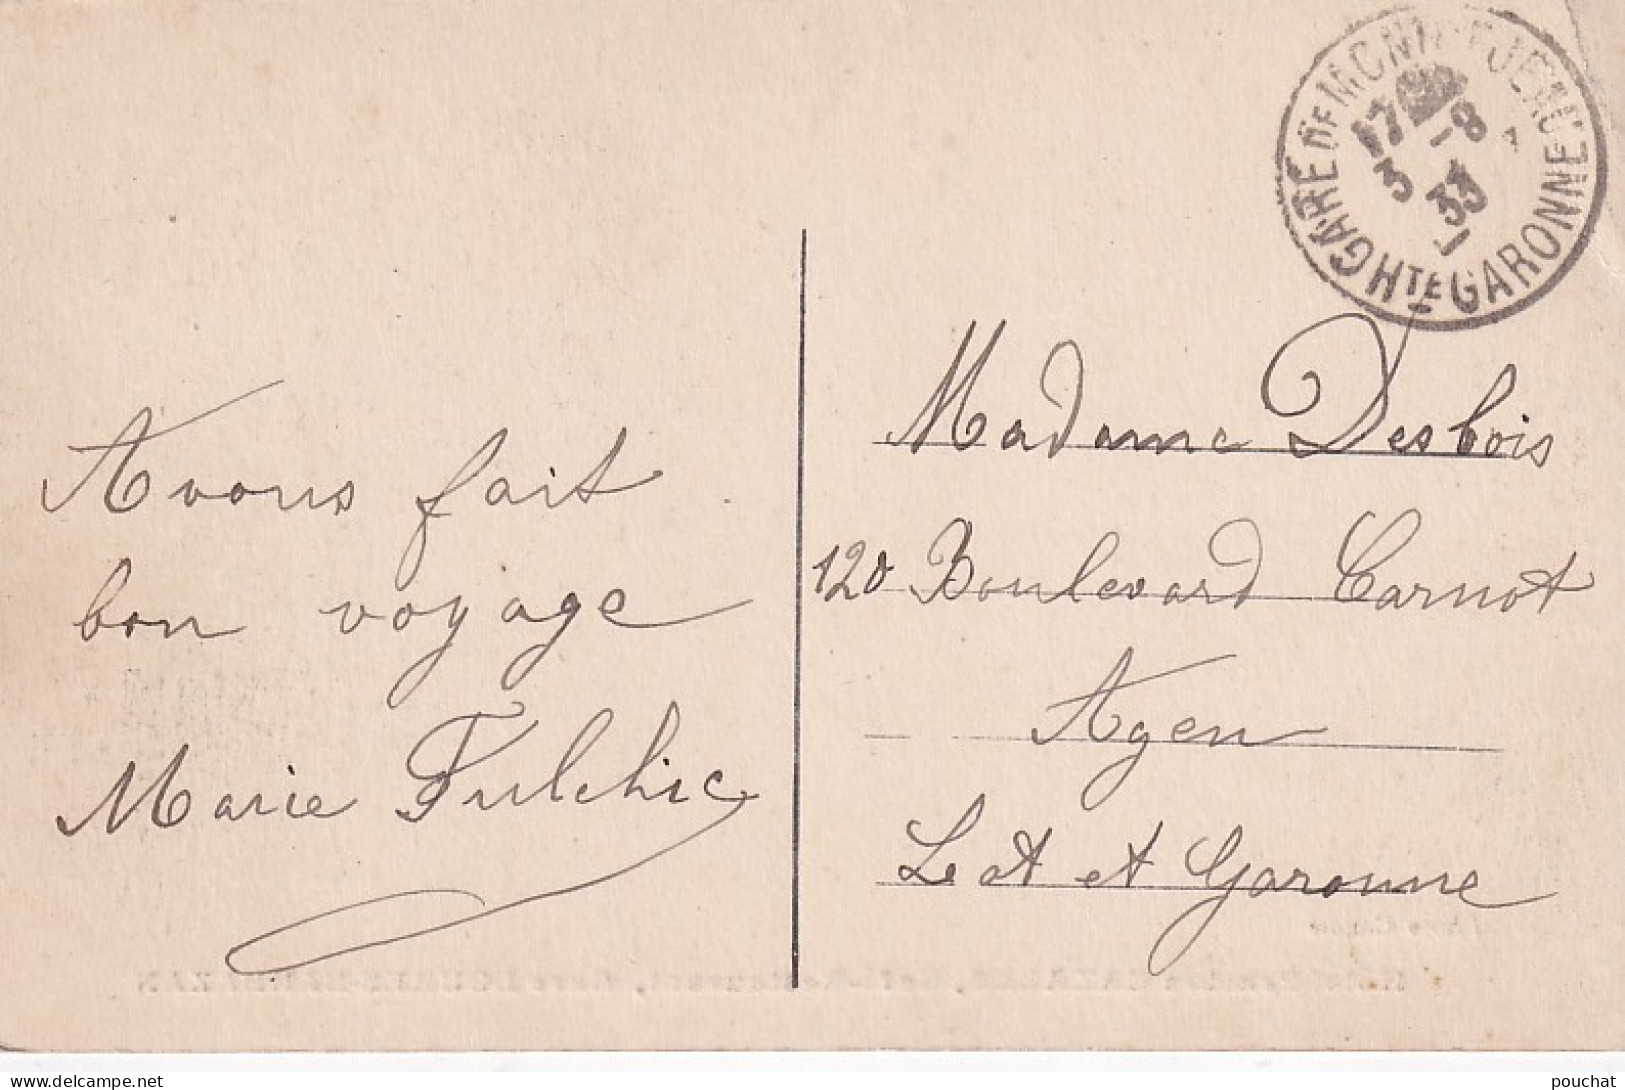 GARE DE MONTREJEAU
Hte GARONNE
17 -8
3
33
Avons fait
bon voyage
Marie Fulchic
Madame Desbois
120 Boulevard Carnot
Agen
Lot et Garonne
www.delcampe.net
pouchat